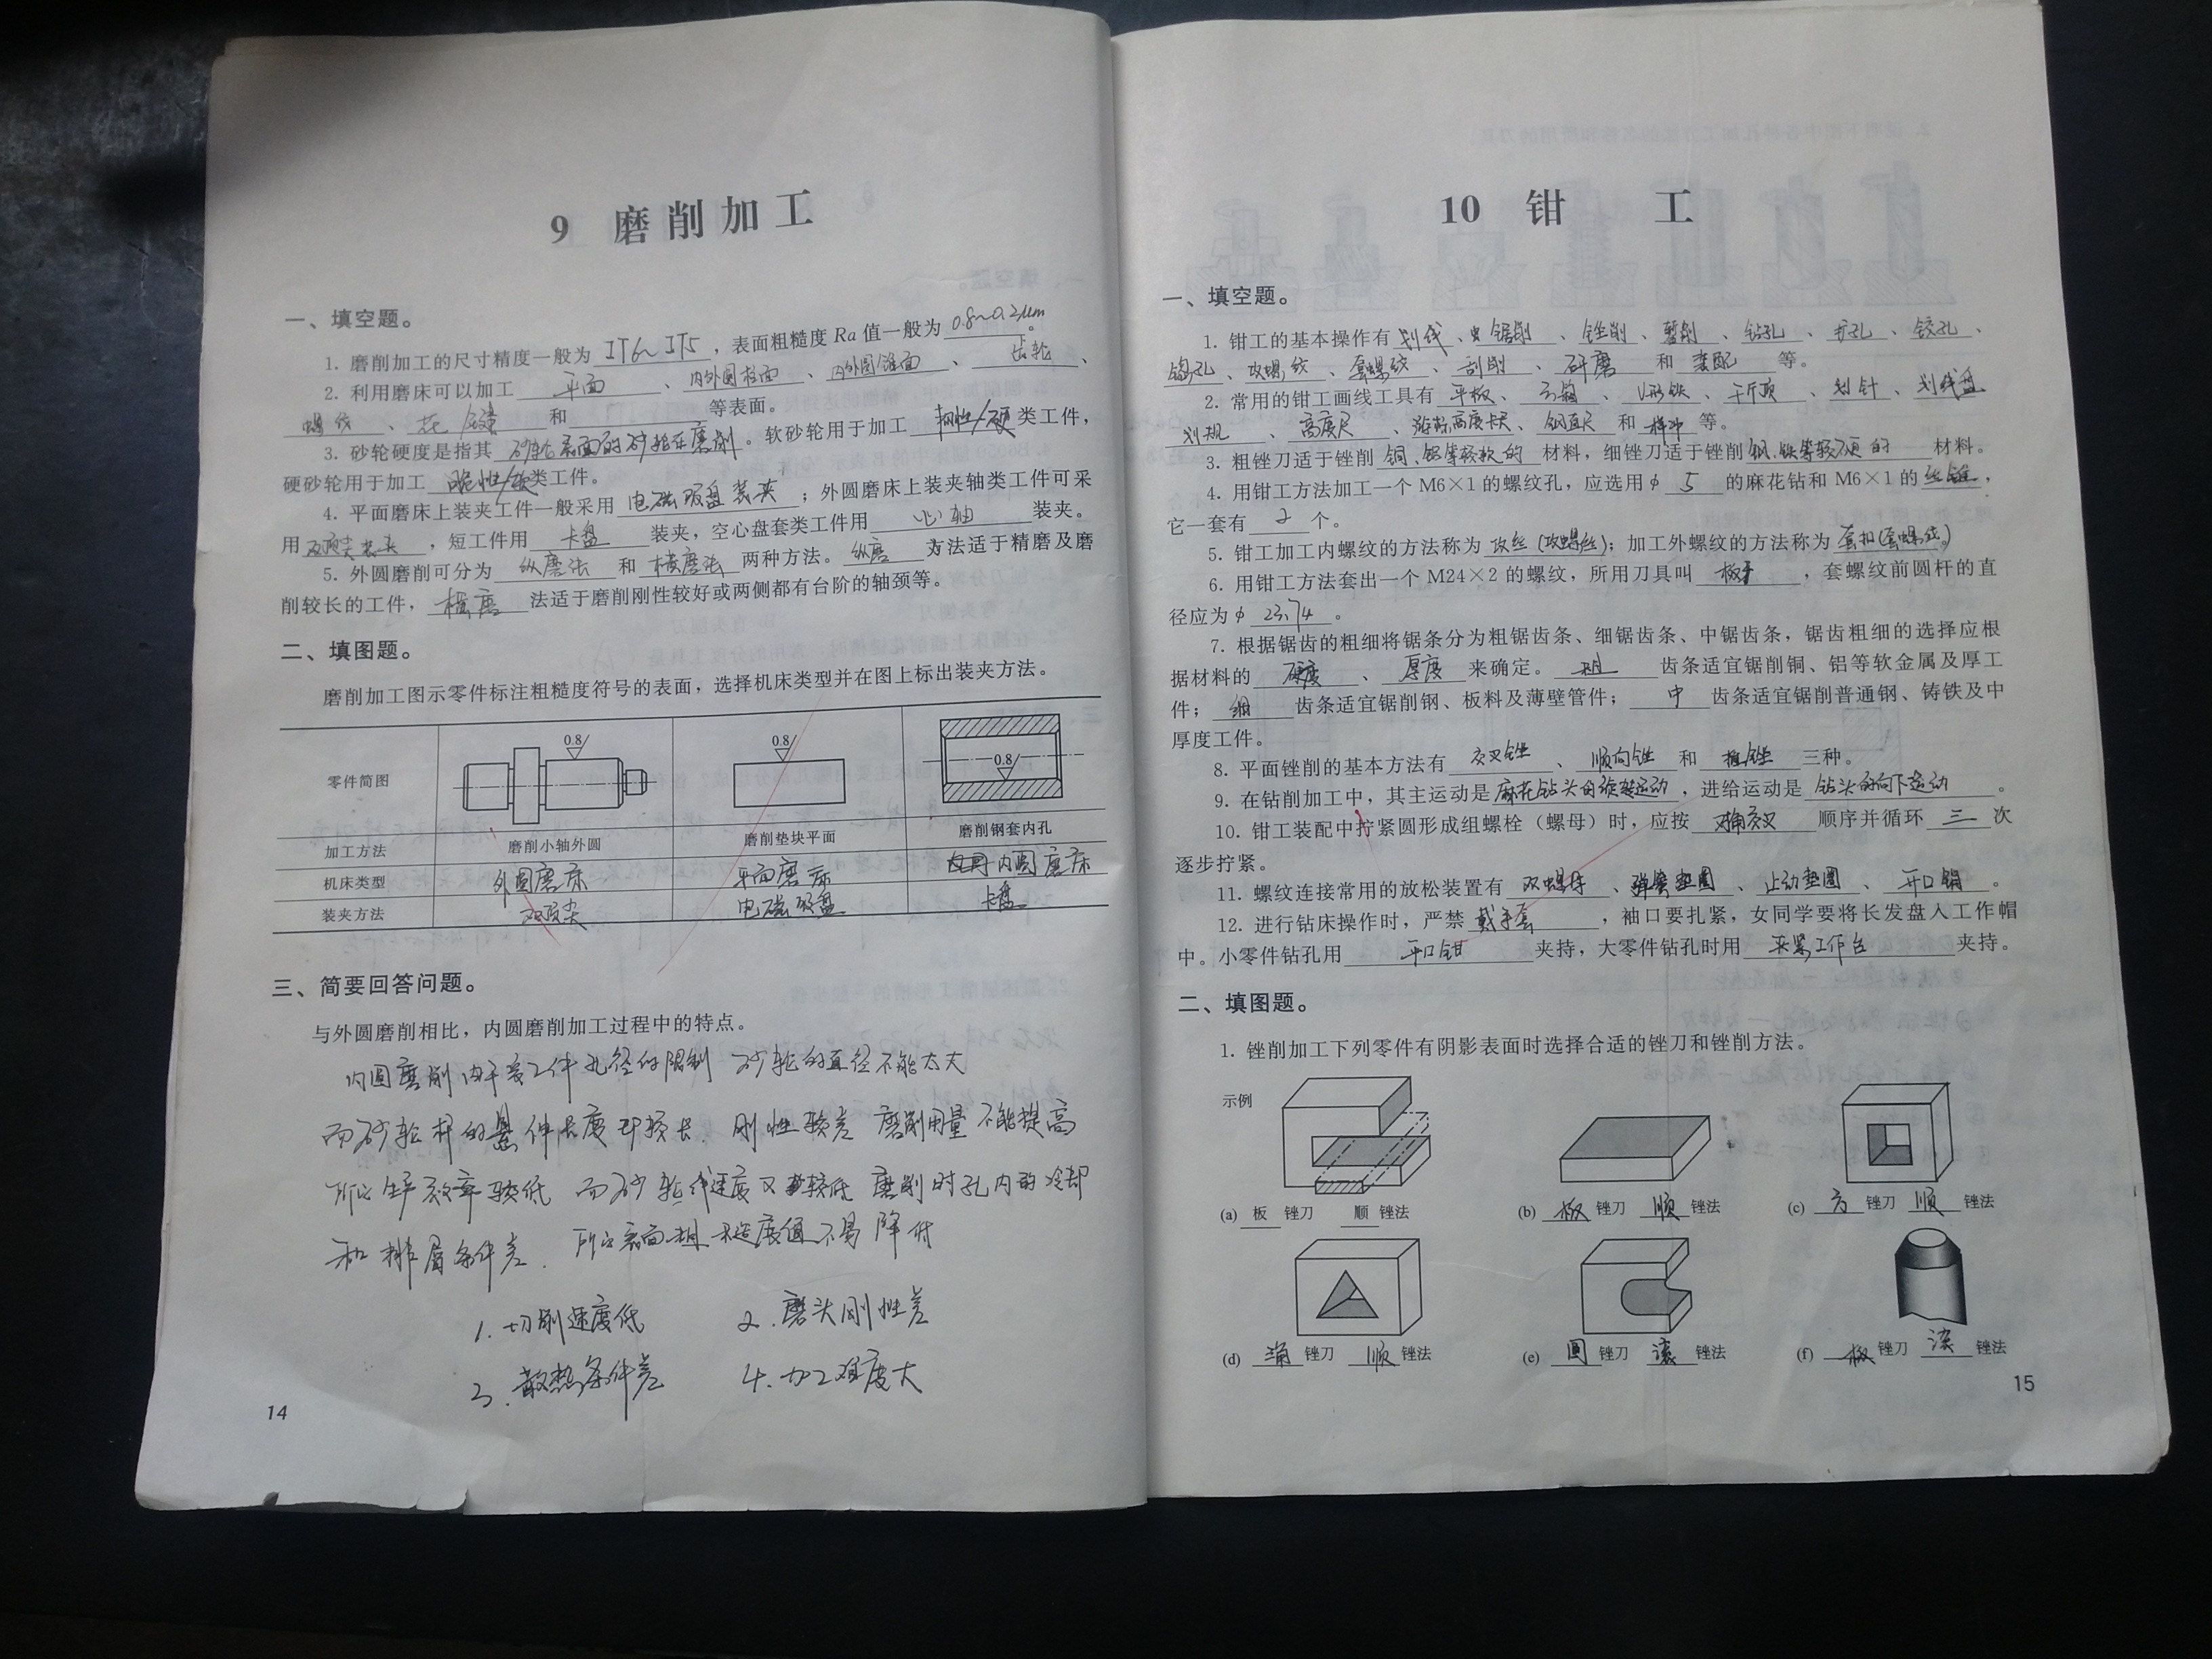 9 磨削加工
一、填空题。
1. 磨削加工的尺寸精度一般为 IT6~IT5 ，表面粗糙度 Ra 值一般为 0.8~0.2μm 。
2. 利用磨床可以加工 平面 、 内外圆柱面 、 内外圆锥面 、 齿轮 、
螺纹 、 花键 和 等表面。
3. 砂轮硬度是指其 砂轮表面的砂粒在磨削 。软砂轮用于加工 韧性/硬 类工件，
硬砂轮用于加工 脆性/软 类工件。
4. 平面磨床上装夹工件一般采用 电磁吸盘装夹 ；外圆磨床上装夹轴类工件可采
用 双顶尖装夹 ，短工件用 卡盘 装夹，空心盘套类工件用 心轴 装夹。
5. 外圆磨削可分为 纵磨法 和 横磨法 两种方法。 纵磨 方法适于精磨及磨
削较长的工件， 横磨 法适于磨削刚性较好或两侧都有台阶的轴颈等。
二、填图题。
磨削加工图示零件标注粗糙度符号的表面，选择机床类型并在图上标出装夹方法。
零件简图 0.8 0.8 0.8
加工方法 磨削小轴外圆 磨削垫块平面 磨削钢套内孔
机床类型 外圆磨床 平面磨床 内圆磨床
装夹方法 双顶尖 电磁吸盘 卡盘
三、简要回答问题。
与外圆磨削相比，内圆磨削加工过程中的特点。
内圆磨削由于受工件孔径的限制 砂轮的直径不能太大
而砂轮杆的悬伸长度又较长. 刚性较差 磨削用量不能提高
所以生产效率较低 而砂轮线速度又较低 磨削时孔内的冷却
和排屑条件差. 所以表面粗糙度值不易降低
1. 切削速度低 2. 磨头刚性差
3. 散热条件差 4. 加工难度大
14
10 钳 工
一、填空题。
1. 钳工的基本操作有 划线 、 锯削 、 锉削 、 錾削 、 钻孔 、 扩孔 、 铰孔 、
锪孔 、 攻螺纹 、 套螺纹 、 刮削 、 研磨 和 装配 等。
2. 常用的钳工画线工具有 平板 、 方箱 、 V形铁 、 千斤顶 、 划针 、 划线盘
划规 、 高度尺 、 游标高度卡尺 、 钢直尺 和 样冲 等。
3. 粗锉刀适于锉削 铜、铝等较软的 材料，细锉刀适于锉削 钢、铁等较硬的 材料。
4. 用钳工方法加工一个 M6×1 的螺纹孔，应选用 φ 5 的麻花钻和 M6×1 的 丝锥 ，
它一套有 2 个。
5. 钳工加工内螺纹的方法称为 攻丝(攻螺丝) ；加工外螺纹的方法称为 套扣(套螺纹) 。
6. 用钳工方法套出一个 M24×2 的螺纹，所用刀具叫 板牙 ，套螺纹前圆杆的直
径应为 φ 23.74 。
7. 根据锯齿的粗细将锯条分为粗锯齿条、细锯齿条、中锯齿条，锯齿粗细的选择应根
据材料的 硬度 、 厚度 来确定。 粗 齿条适宜锯削铜、铝等软金属及厚工
件； 细 齿条适宜锯削钢、板料及薄壁管件； 中 齿条适宜锯削普通钢、铸铁及中
厚度工件。
8. 平面锉削的基本方法有 交叉锉 、 顺向锉 和 推锉 三种。
9. 在钻削加工中，其主运动是 麻花钻头的旋转运动 ，进给运动是 钻头的向下运动 。
10. 钳工装配中拧紧圆形成组螺栓（螺母）时，应按 对角交叉 顺序并循环 三 次
逐步拧紧。
11. 螺纹连接常用的放松装置有 双螺母 、 弹簧垫圈 、 止动垫圈 、 开口销 。
12. 进行钻床操作时，严禁 戴手套 ，袖口要扎紧，女同学要将长发盘入工作帽
中。小零件钻孔用 平口钳 夹持，大零件钻孔时用 夹紧工作台 夹持。
二、填图题。
1. 锉削加工下列零件有阴影表面时选择合适的锉刀和锉削方法。
示例
(a) 板 锉刀 顺 锉法 (b) 板 锉刀 顺 锉法 (c) 方 锉刀 顺 锉法
(d) 角 锉刀 顺 锉法 (e) 圆 锉刀 滚 锉法 (f) 板 锉刀 滚 锉法
15